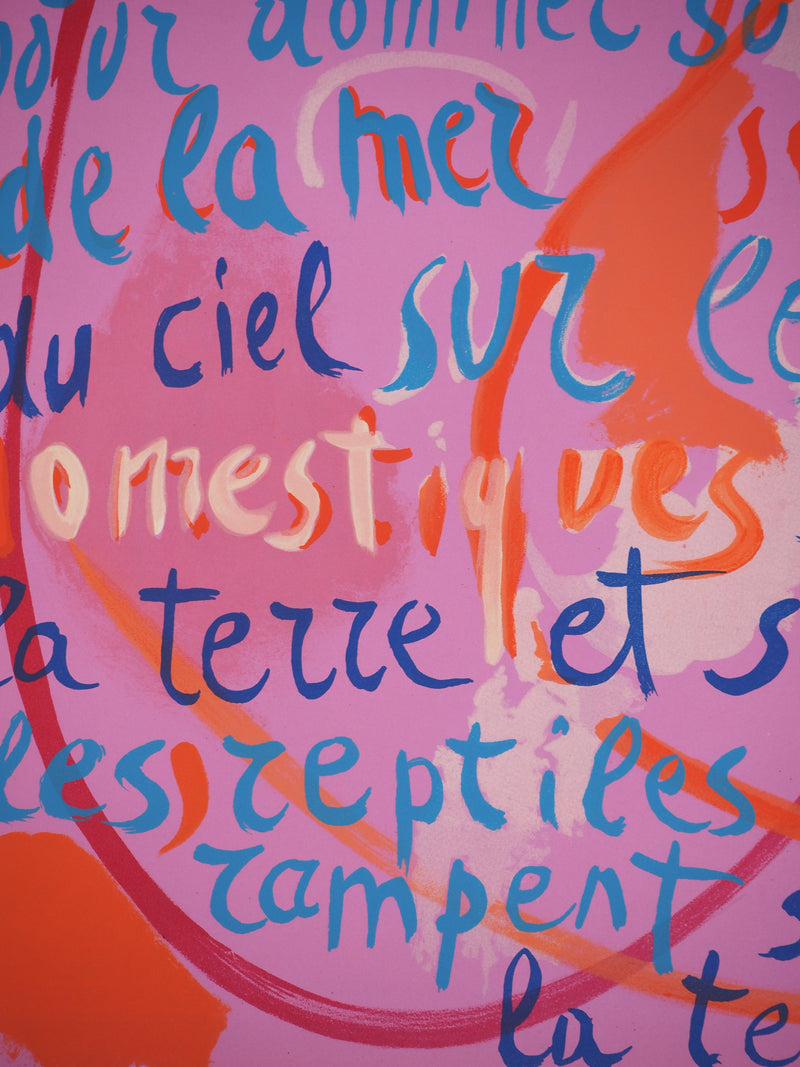 pour dominer su
de la mer s
du ciel sur le
omestiques
la terre et s
les reptiles
rampent s
la te